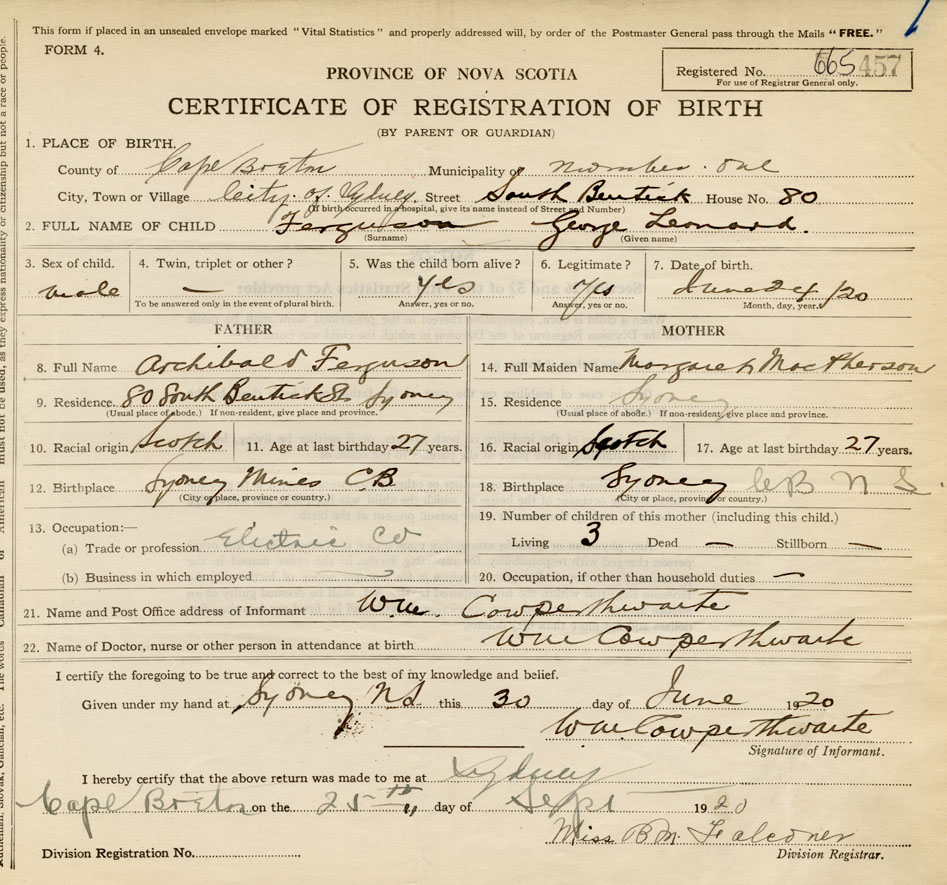 This form if placed in an unsealed envelope marked "Vital Statistics" and properly addressed will, by order of the Postmaster General pass through the Mails "FREE."
FORM 4.
Registered No. 665 457
For use of Registrar General only.
PROVINCE OF NOVA SCOTIA
CERTIFICATE OF REGISTRATION OF BIRTH
(BY PARENT OR GUARDIAN)
1. PLACE OF BIRTH.
County of Cape Breton Municipality of Number One
City, Town or Village City of Sydney Street South Bentick House No. 80
(If birth occurred in a hospital, give its name instead of Street and Number)
2. FULL NAME OF CHILD Ferguson George Leonard.
(Surname) (Given name)
3. Sex of child. 4. Twin, triplet or other? 5. Was the child born alive? 6. Legitimate? 7. Date of birth.
male — Yes Yes June 24/20
To be answered only in the event of plural birth. Answer, yes or no. Answer, yes or no. Month, day, year.
FATHER
8. Full Name Archibald Ferguson
9. Residence. 80 South Bentick St Sydney
(Usual place of abode.) If non-resident, give place and province.
10. Racial origin Scotch 11. Age at last birthday 27 years.
12. Birthplace Sydney Mines C.B.
(City or place, province or country.)
13. Occupation:—
(a) Trade or profession Electric Co
(b) Business in which employed —
MOTHER
14. Full Maiden Name Margaret MacPherson
15. Residence Sydney
(Usual place of abode.) If non-resident, give place and province.
16. Racial origin Scotch 17. Age at last birthday 27 years.
18. Birthplace Sydney C B N S.
(City or place, province or country.)
19. Number of children of this mother (including this child.)
Living 3 Dead — Stillborn —
20. Occupation, if other than household duties —
21. Name and Post Office address of Informant Wm. Cowperthwaite
22. Name of Doctor, nurse or other person in attendance at birth Wm Cowperthwaite
I certify the foregoing to be true and correct to the best of my knowledge and belief.
Given under my hand at Sydney N.S. this 30 day of June 1920
Wm. Cowperthwaite
Signature of Informant.
I hereby certify that the above return was made to me at Sydney
Cape Breton on the 25th day of Sept 1920
Miss B.M. Falconer
Division Registrar.
Division Registration No.